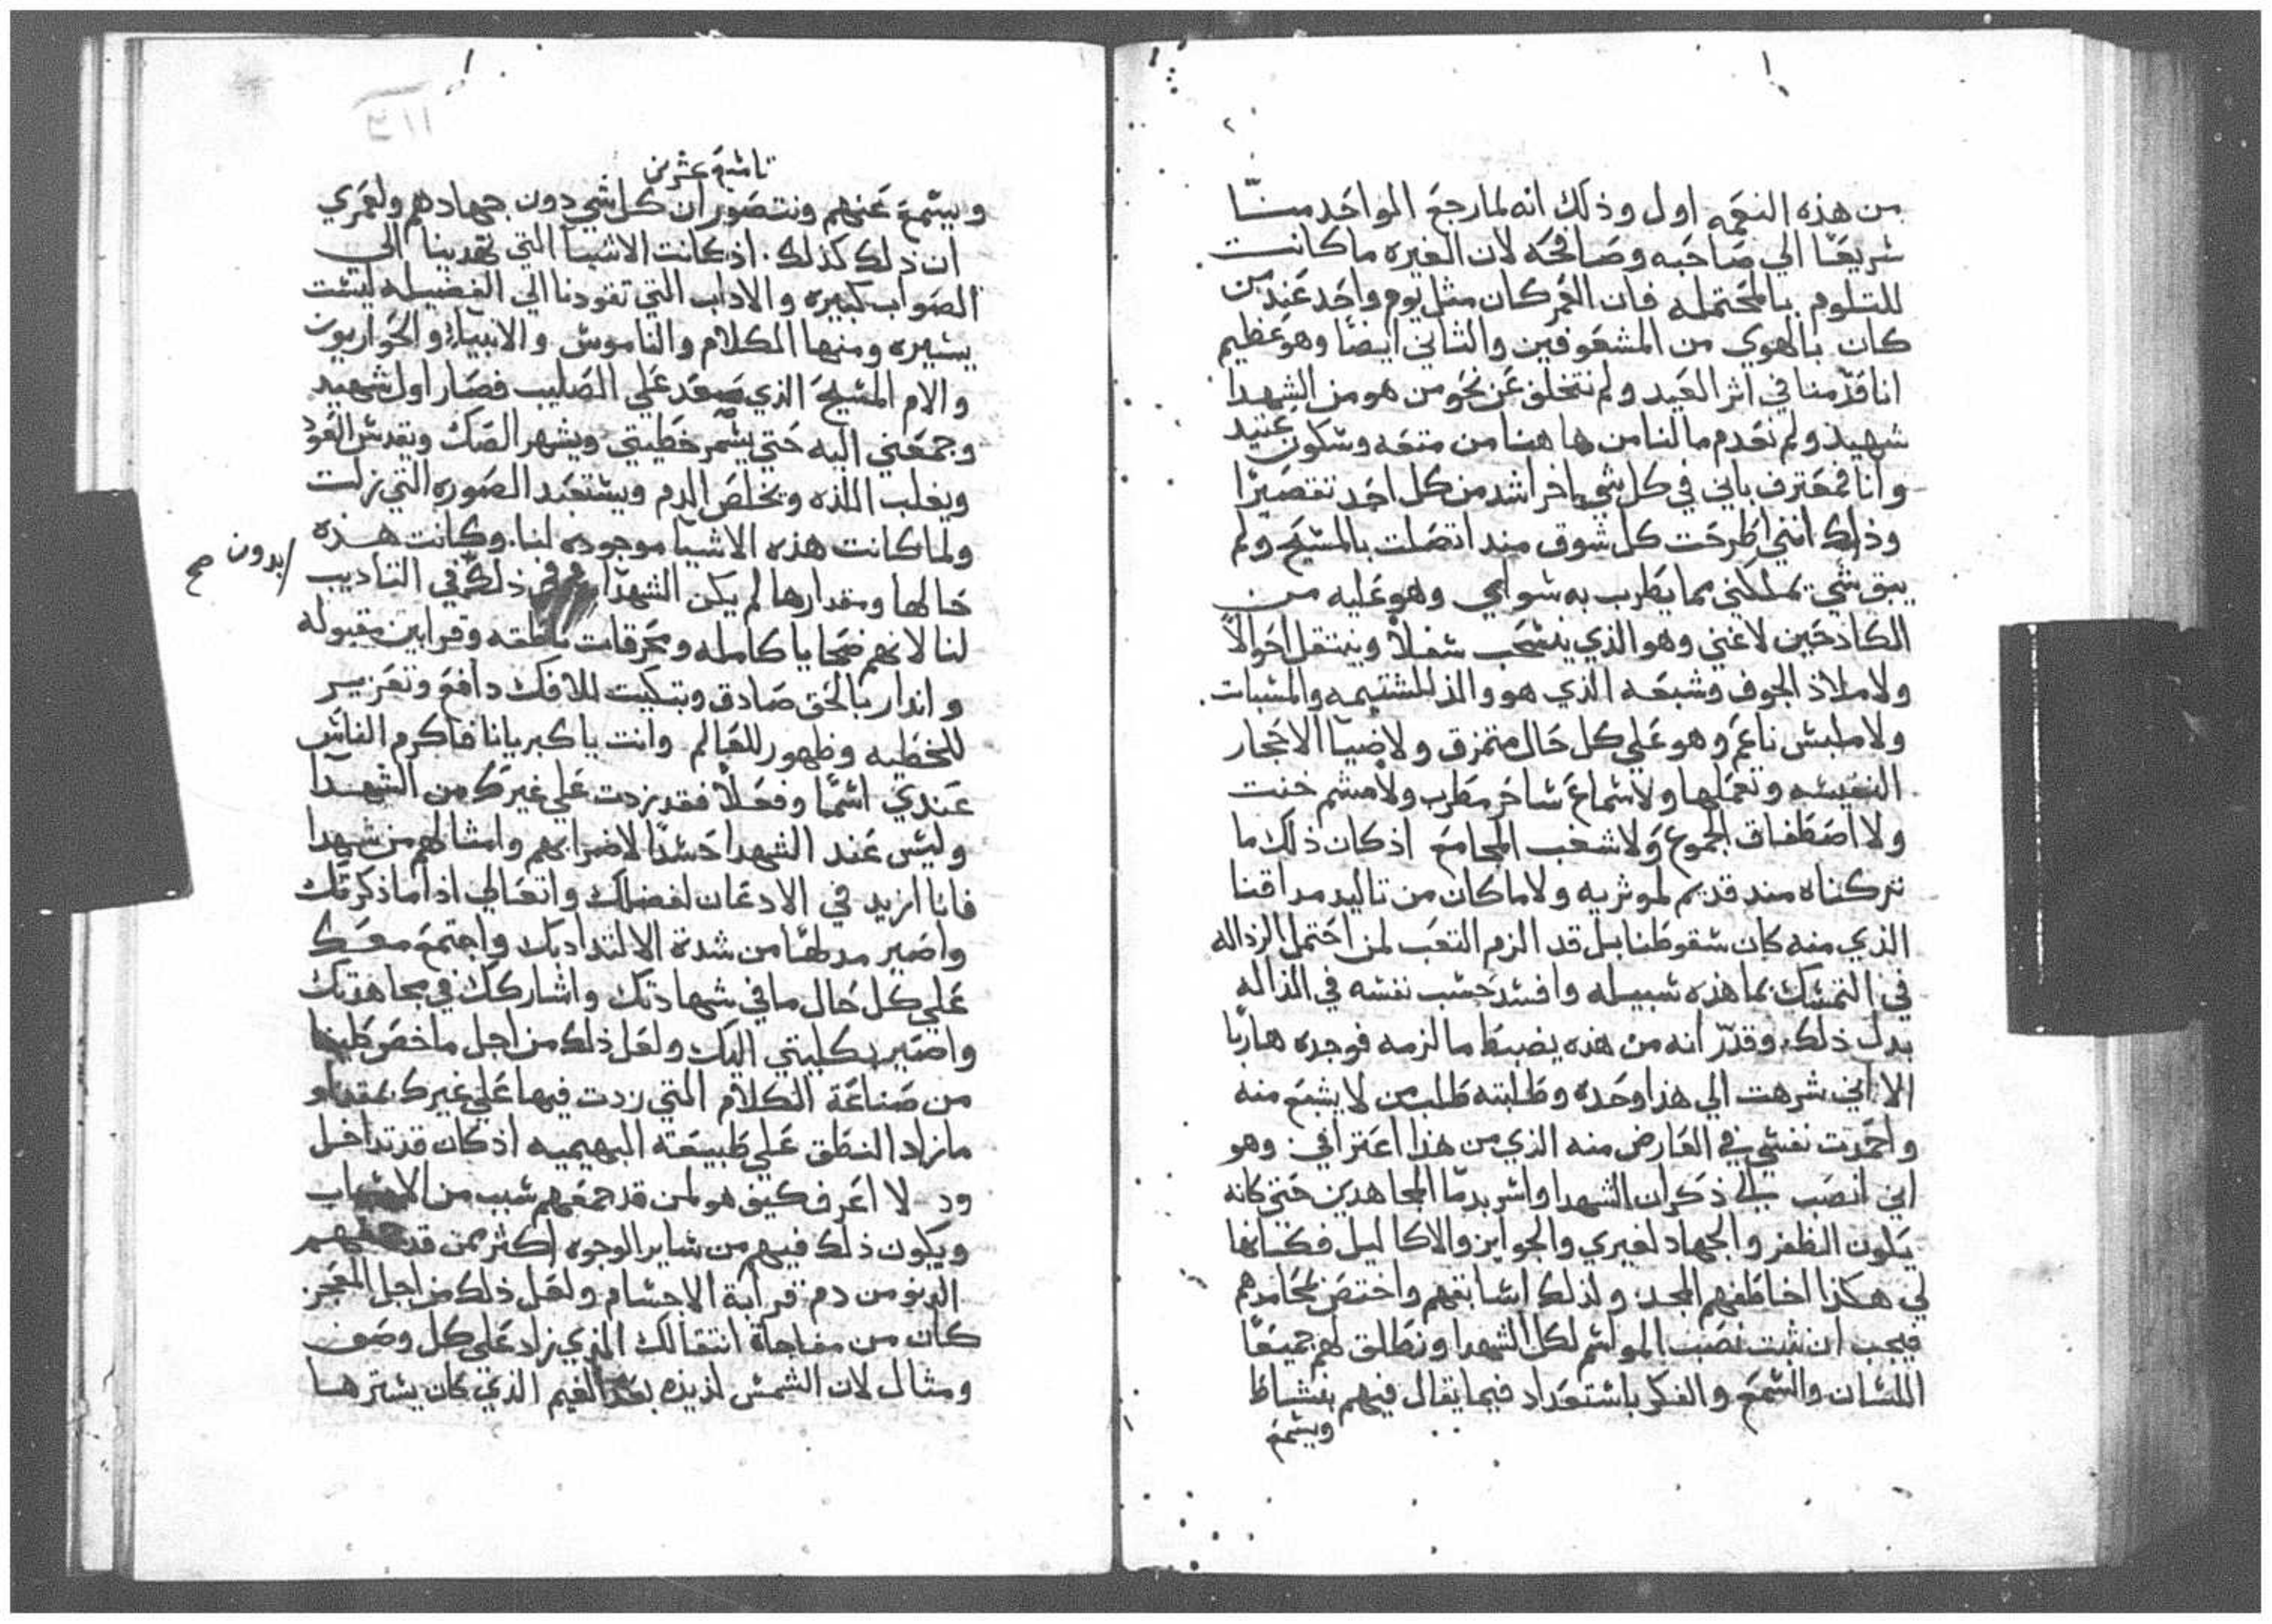 من هذه النعمه اول وذلك انه لما رجع الواحد منا
شريعًا الي صاحبه وصافحه لان الغيره ما كانت
للتلوم بالمحتمله فان العمر كان مثل يوم واحد عند من
كان بالهوي من المشغوفين والثاني ايضًا وهو عظيم
انا قدّمنا في اثر العيد ولم نتخلف عن نحو من هو من الشهدا
شهيد ولم نعدم ما لنا من ها هنا من متعه وسكون عتيد
وانا فمعترف باني في كل شي اخر اشد من كل احد تقصيرًا
وذلك انني اطرحت كل شوق منذ اتصلت بالمسيح ولم
يبق شي يملكني مما يطرب به سواي وهو عليه من
الكادحين لا غني وهو الذي ينسحب سفلاً وينتقل احوالاً
ولا ملاذ الجوف وشبعه الذي هو والد للشتيمه والسبات
ولا ملبس ناعم وهو علي كل حال متمزق ولا ضيآ الاحجار
النفيسه وتعملها ولا سماع ساخر مطرب ولا مشم خنث
ولا اصطفاف الجموع ولا شغب المجامع اذ كان ذلك ما
تركناه مند قديم لموثريه ولا ما كان من تاليد مداقنا
الذي منه كان سقوطنا بل قد الزم التعب لمن احتمل الرذاله
في التمسك بما هذه سبيله وافسد حسب نفسه في النذاله
بدل ذلك وقدّر انه من هذه يضبط ما لزمه فوجده هاربًا
الا اني شرهت الي هذا وحده وطلبته طلب من لا يشبع منه
واحمدت نفسي في العارض منه الذي من هذا اعترافي وهو
اني انصب الي ذكران الشهدا واسر بدما المجاهدين حتي كانه
يكون الظفر والجهاد لغيري والجوايز والاكاليل فكانها
لي هكذا اخاطفهم المجد ولذلك اسابقهم واختص بمحامدهم
فيجب ان نثبت نصب المواسم لكل الشهدا ونطلق لهم جميعًا
اللسان والسمع والفكر باستعداد فيما يقال فيهم بنشاط
ويسمع
٤١١
تاسع عشرين
ويسمع عنهم ونتصور ان كل شي دون جهادهم ولعمري
ان ذلك كذلك اذ كانت الاشيآ التي تهدينا الي
الصواب كبيره والاداب التي تقودنا الي الفضيله ليست
يسيره ومنها الكلام والناموس والانبيآ والحواريون
والام المسيح الذي صعد علي الصليب فصار اول شهيد
وجمعني اليه حتي يسمر خطيتي ويشهر الصك ويقدس العود
ويغلب اللذه ويخلص الدم ويستعبد الصوره التي زلت
ولما كانت هذه الاشيآ موجوده لنا وكانت هذه
حالها ومقدارها لم يكن الشهدآ ذلك في التاديب
بدون صح
لنا لانهم ضحايا كامله ومحرقات ناطقه وقرابين مقبوله
وانذار بالحق صادق وتبكيت للافك دافع وتعزير
للخطيه وظهور للعالم وانت يا كبريانا فاكرم الناس
عندي اسمًا وفعلاً فقد زدت علي غيرك من الشهدآ
وليس عند الشهدا حسدًا لاضرابهم وامثالهم من شهدا
فانا ازيد في الادعان لفضلك واتعالي اذا ما ذكرتك
واصير مدلهًا من شدة الالتداد بك واجتمع معك
علي كل حال ما في شهادتك واشاركك في مجاهدتك
واصير بكليتي اليك ولعل ذلك من اجل ما خص
من صناعة الكلام التي زدت فيها علي غيرك بمقدار
ما زاد النطق علي طبيعته البهيميه اذ كان قد تداخل
ود لا اعرف كيف هو لمن قد جمعهم سبب من الاسباب
ويكون ذلك فيهم من ساير الوجوه اكثر ممن قد
الدنو من دم قرابة الاجسام ولعل ذلك من اجل المعجز
كان من مفاجاة انتقالك الذي زاد علي كل وصف
ومثال لان الشمس لذيذه بعد الغيم الذي كان يسترها